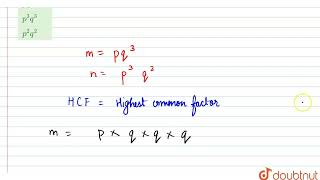 p³q³
p²q²
m = pq³
n = p³ q²
HCF = Highest common factor
m = p × q × q × q
doubtnut